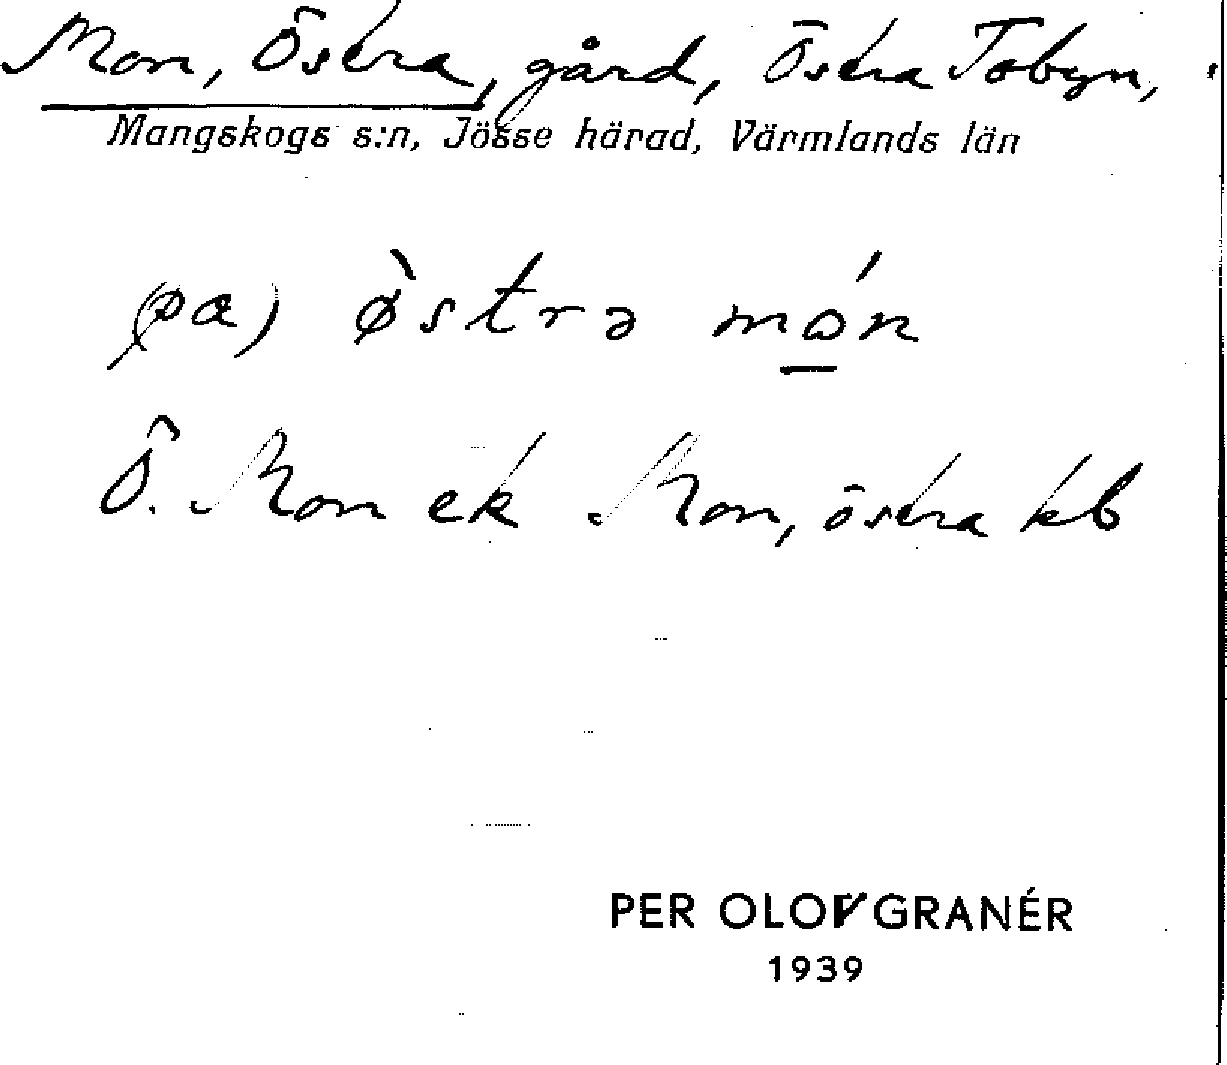 Mon, Östra, gård, Östra Tobyn,
Mangskogs s:n, Jösse härad, Värmlands län
(pa) ø̀strə mó̲n
Ö. Mon ek Mon, östra kb
PER OLOV GRANÉR
1939